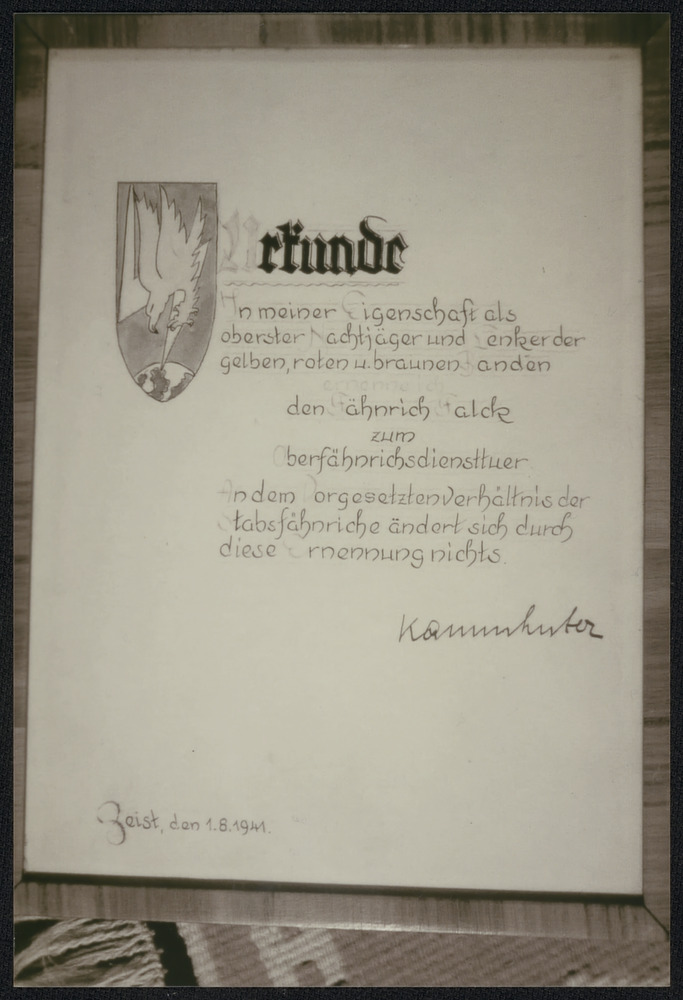 Urkunde
In meiner Eigenschaft als
oberster Nachtjäger und Lenker der
gelben, roten u. braunen Banden
ernenne ich
den Fähnrich Falck
zum
Oberfähnrichsdiensttuer
An dem Vorgesetztenverhältnis der
Stabsfähnriche ändert sich durch
diese Ernennung nichts.
Kammhuber
Zeist, den 1.8.1941.